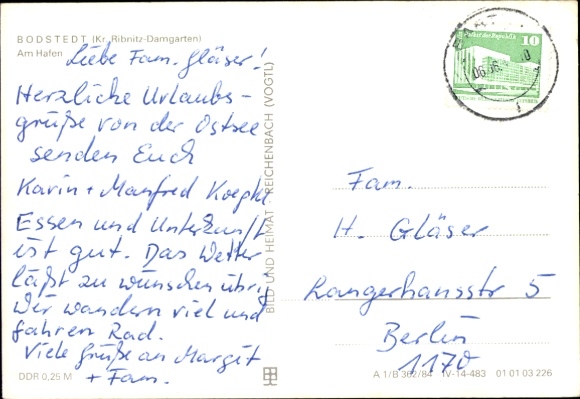 BODSTEDT (Kr. Ribnitz-Damgarten)
Am Hafen
Liebe Fam. Gläser!
Herzliche Urlaubs-
grüße von der Ostsee
senden Euch
Karin + Manfred
Essen und Unterkunft
ist gut. Das Wetter
läßt zu wünschen übrig
Wir wandern viel und
fahren Rad.
Viele Grüße an Margit
+ Fam.
DDR 0,25 M
BILD UND HEIMAT REICHENBACH (VOGTL)
10
Fam.
H. Gläser
Langerhansstr 5
Berlin
1170
A 1/B 362/84 IV-14-483 01 01 03 226